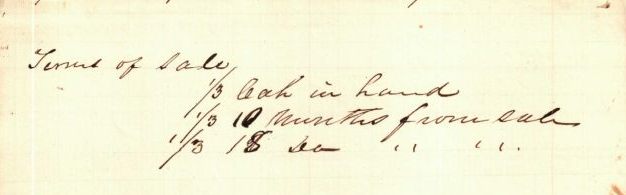 Terms of Sale
1/3 Cash in hand
1/3 10 Months from sale
1/3 18 Do " "